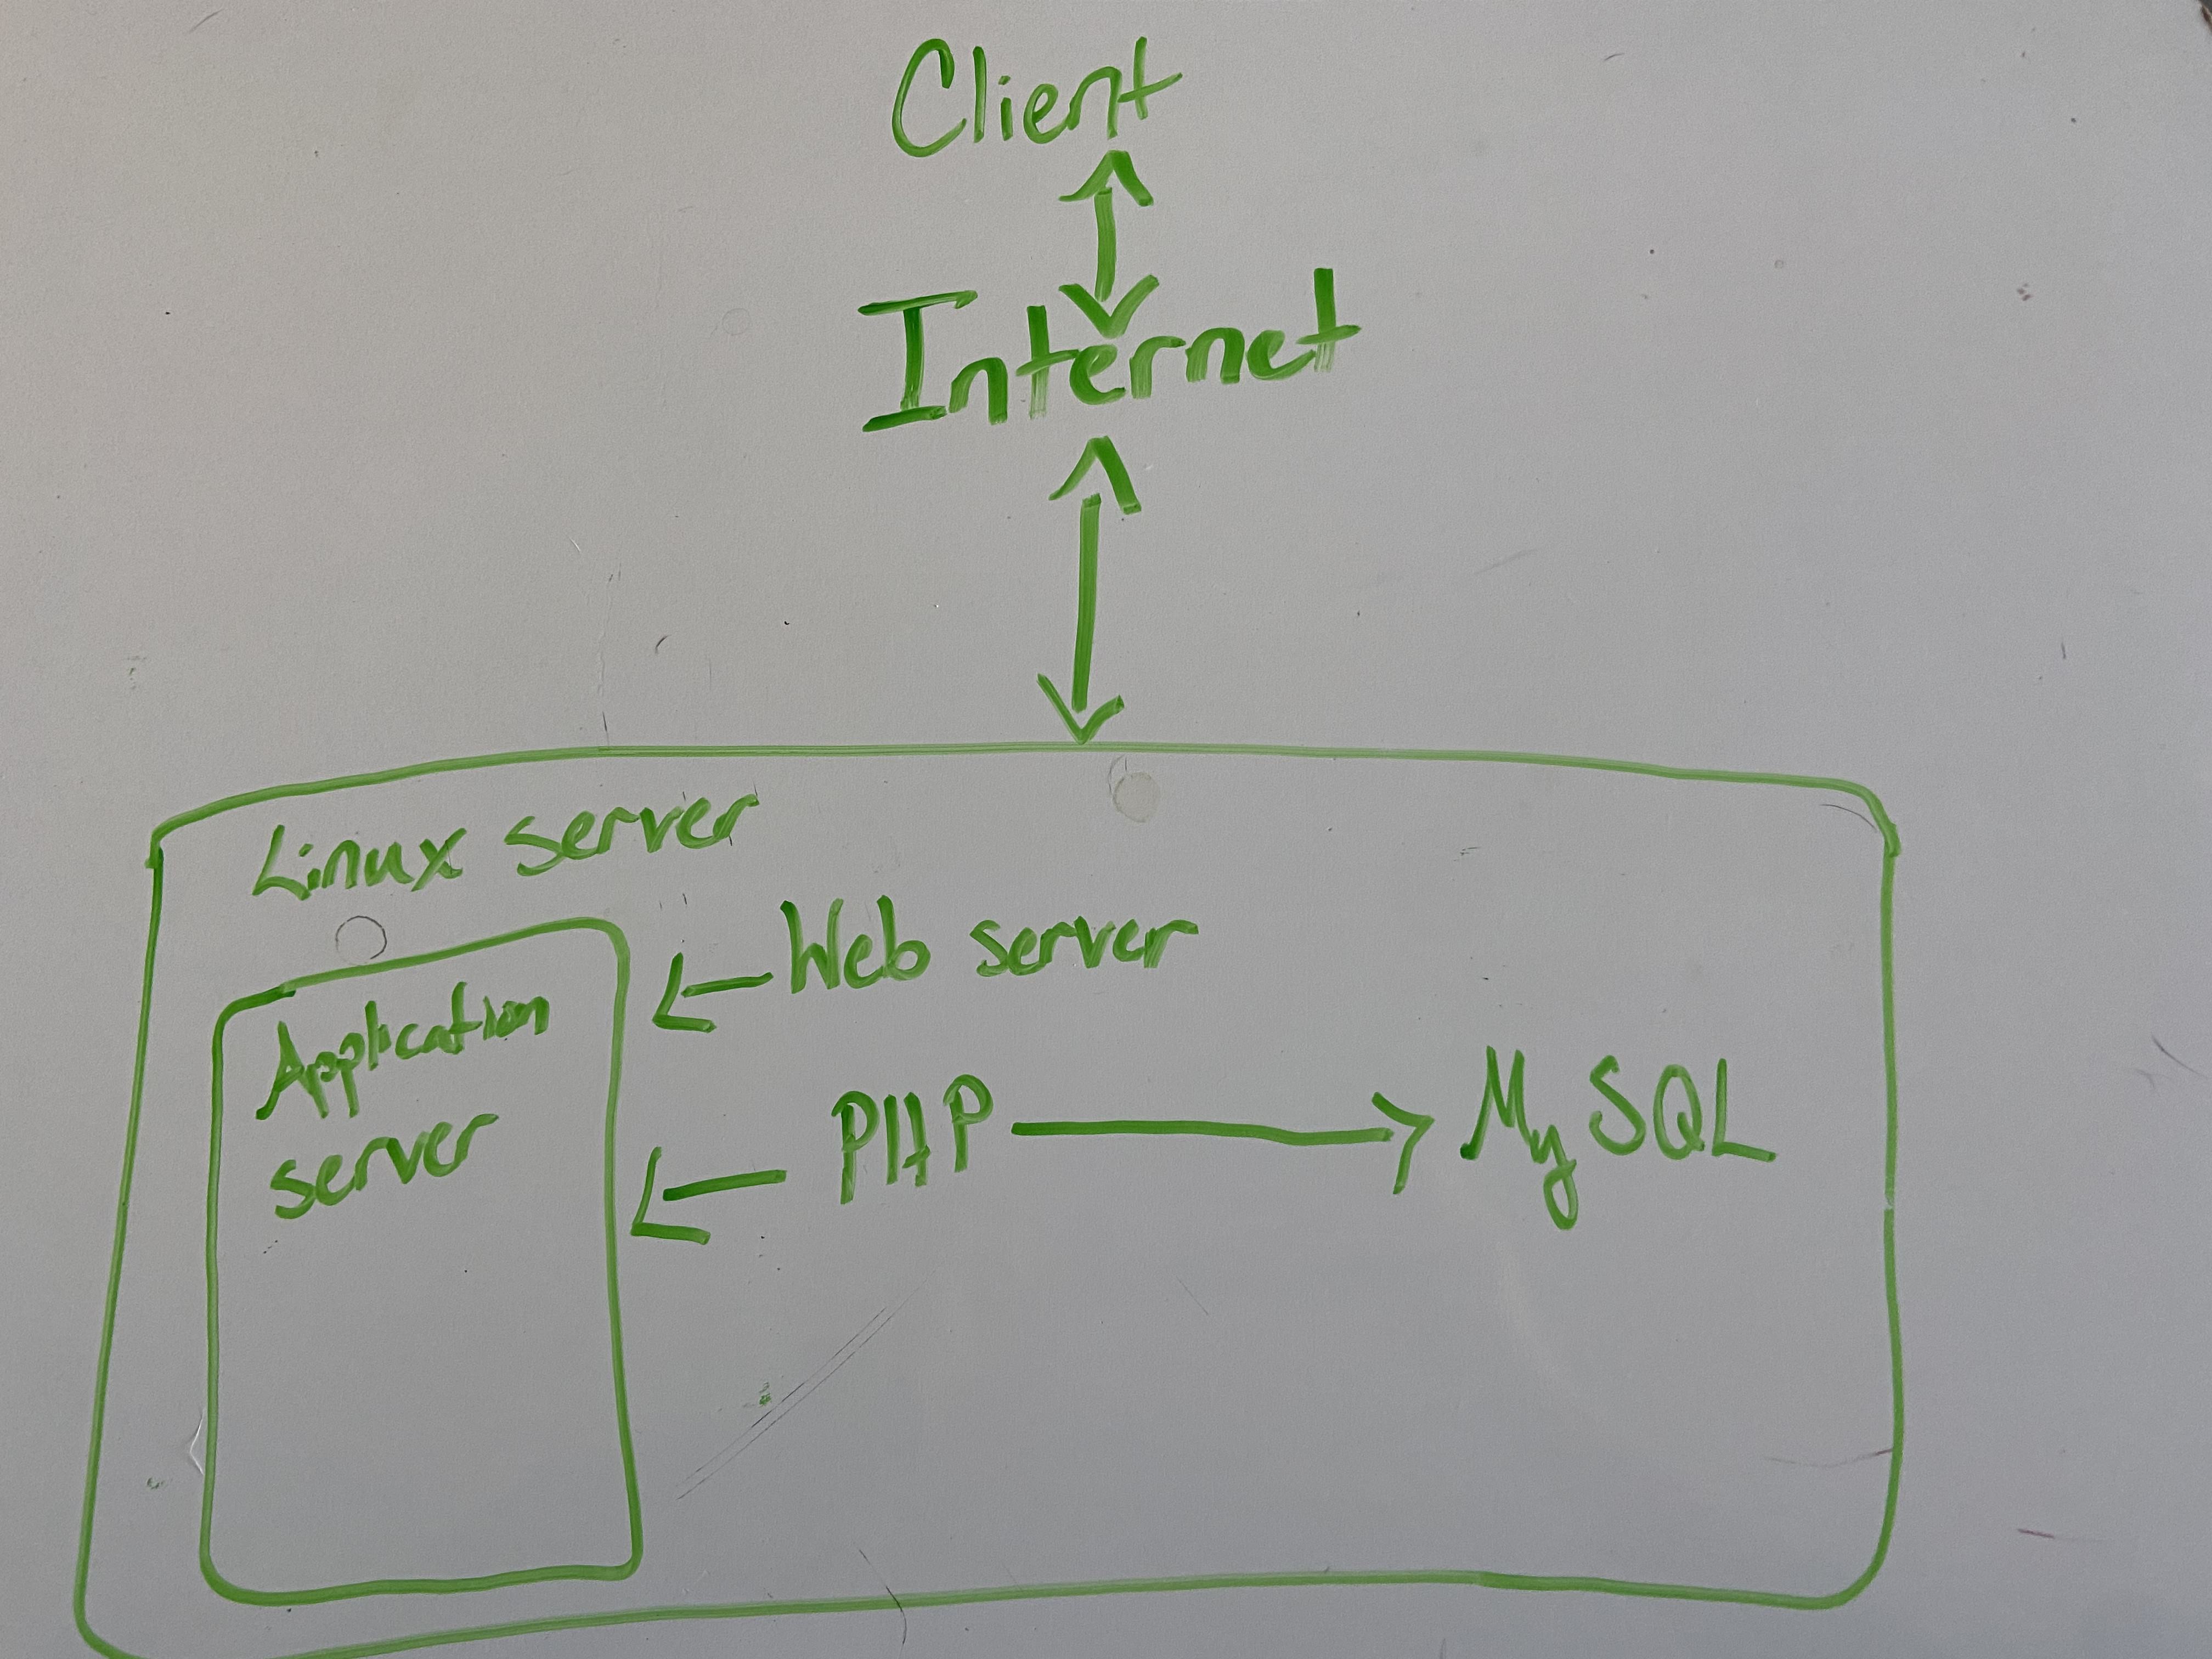 Client
Internet
Linux server
Application
server
Web server
PHP
MySQL